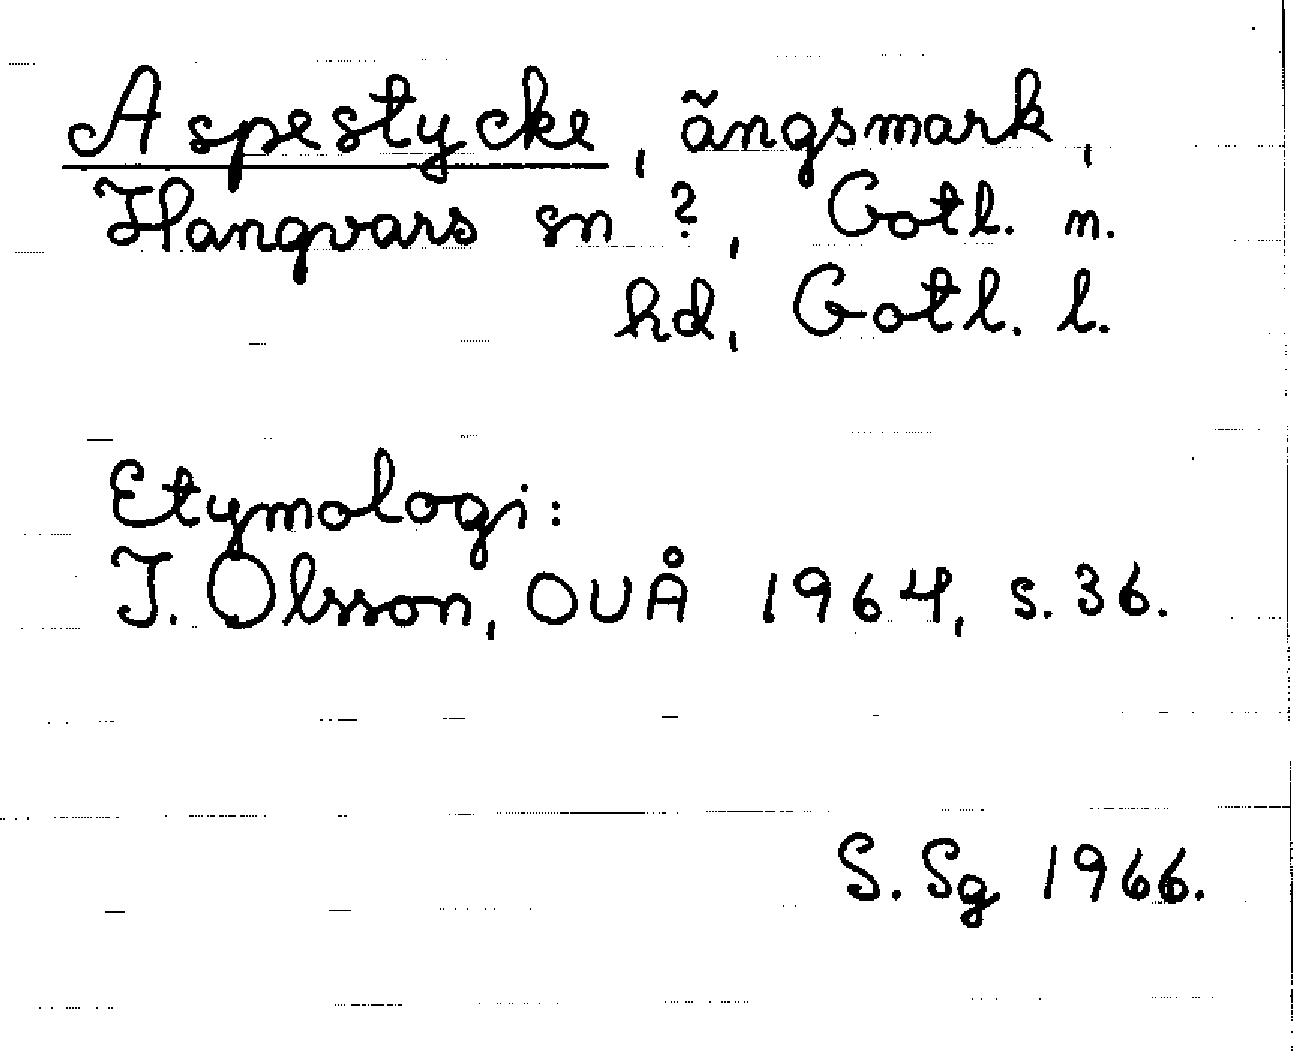 Aspestycke, ängsmark,
Hangvars sn ?, Gotl. n.
hd, Gotl. l.
Etymologi:
I. Olsson, OUÅ 1964, s. 36.
S. Sg 1966.